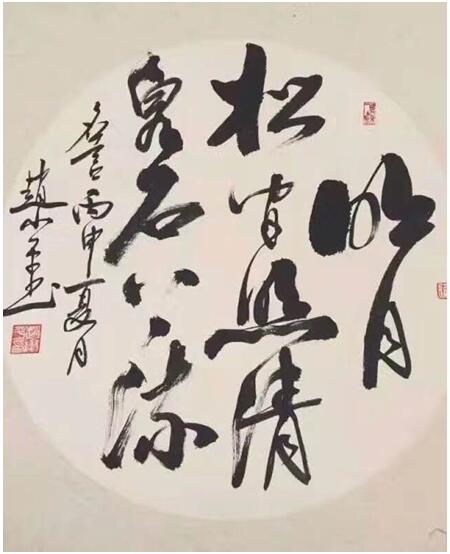 明月
松间照清
泉石上流
名言丙申夏月
趙